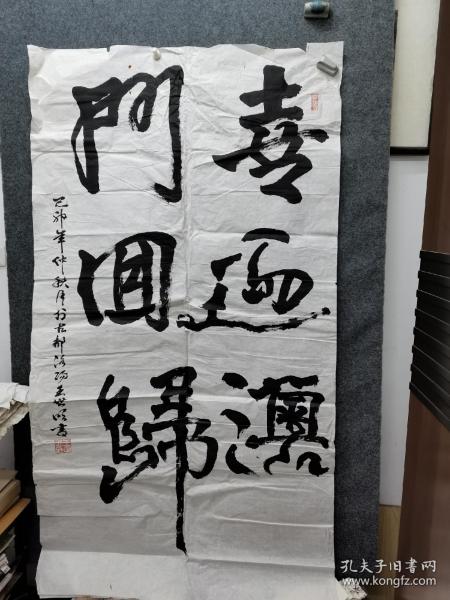 喜迎澳
門回歸
己卯年仲秋月於古都洛阳書
孔夫子旧书网
www.kongfz.com